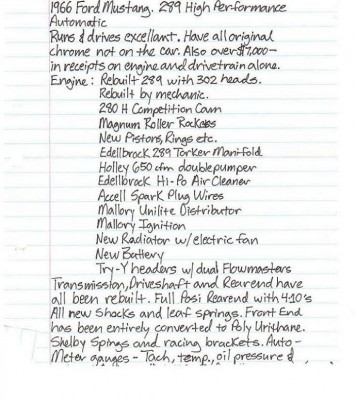 1966 Ford Mustang. 289 High Performance
Automatic
Runs & drives excallant. Have all original
chrome not on the car. Also over $7,000-
in receipts on engine and drivetrain alone.
Engine: Rebuilt 289 with 302 heads.
Rebuilt by mechanic.
280 H Competition Cam
Magnum Roller Rockers
New Pistons, Rings etc.
Edellbrock 289 Torker Manifold
Holley 650 cfm doublepumper
Edellbrock Hi-Po Air Cleaner
Accell Spark Plug Wires
Mallory Unilite Distributor
Mallory Ignition
New Radiator w/ electric fan
New Battery
Try-Y headers w/ dual Flowmasters
Transmission, Driveshaft and Rearend have
all been rebuilt. Full Posi Rearend with 4:10's
All new Shocks and leaf springs. Front End
has been entirely converted to Poly Urithane.
Shelby Spings and racing brackets. Auto-
Meter gauges - Tach, temp., oil pressure &